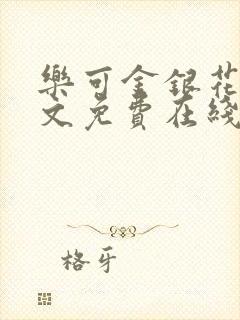 樂可金銀花
文免費在綫
格牙